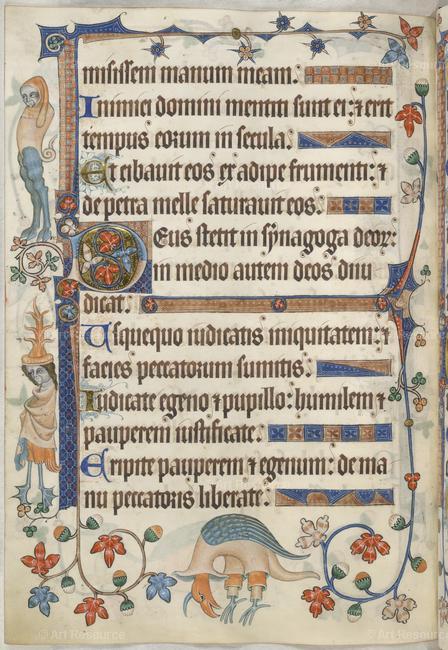 misissem manum meam.
Inimici domini mentiti sunt ei: ⁊ erit
tempus eorum in secula.
Et cibauit eos ex adipe frumenti: ⁊
de petra melle saturauit eos.
Deus stetit in synagoga deor̄:
in medio autem deos diiu
dicat.
Usquequo iudicatis iniquitatem: ⁊
facies peccatorum sumitis.
Iudicate egeno ⁊ pupillo: humilem ⁊
pauperem iustificate.
Eripite pauperem ⁊ egenum: de ma
nu peccatoris liberate.
© Art Resource
© Art Resource